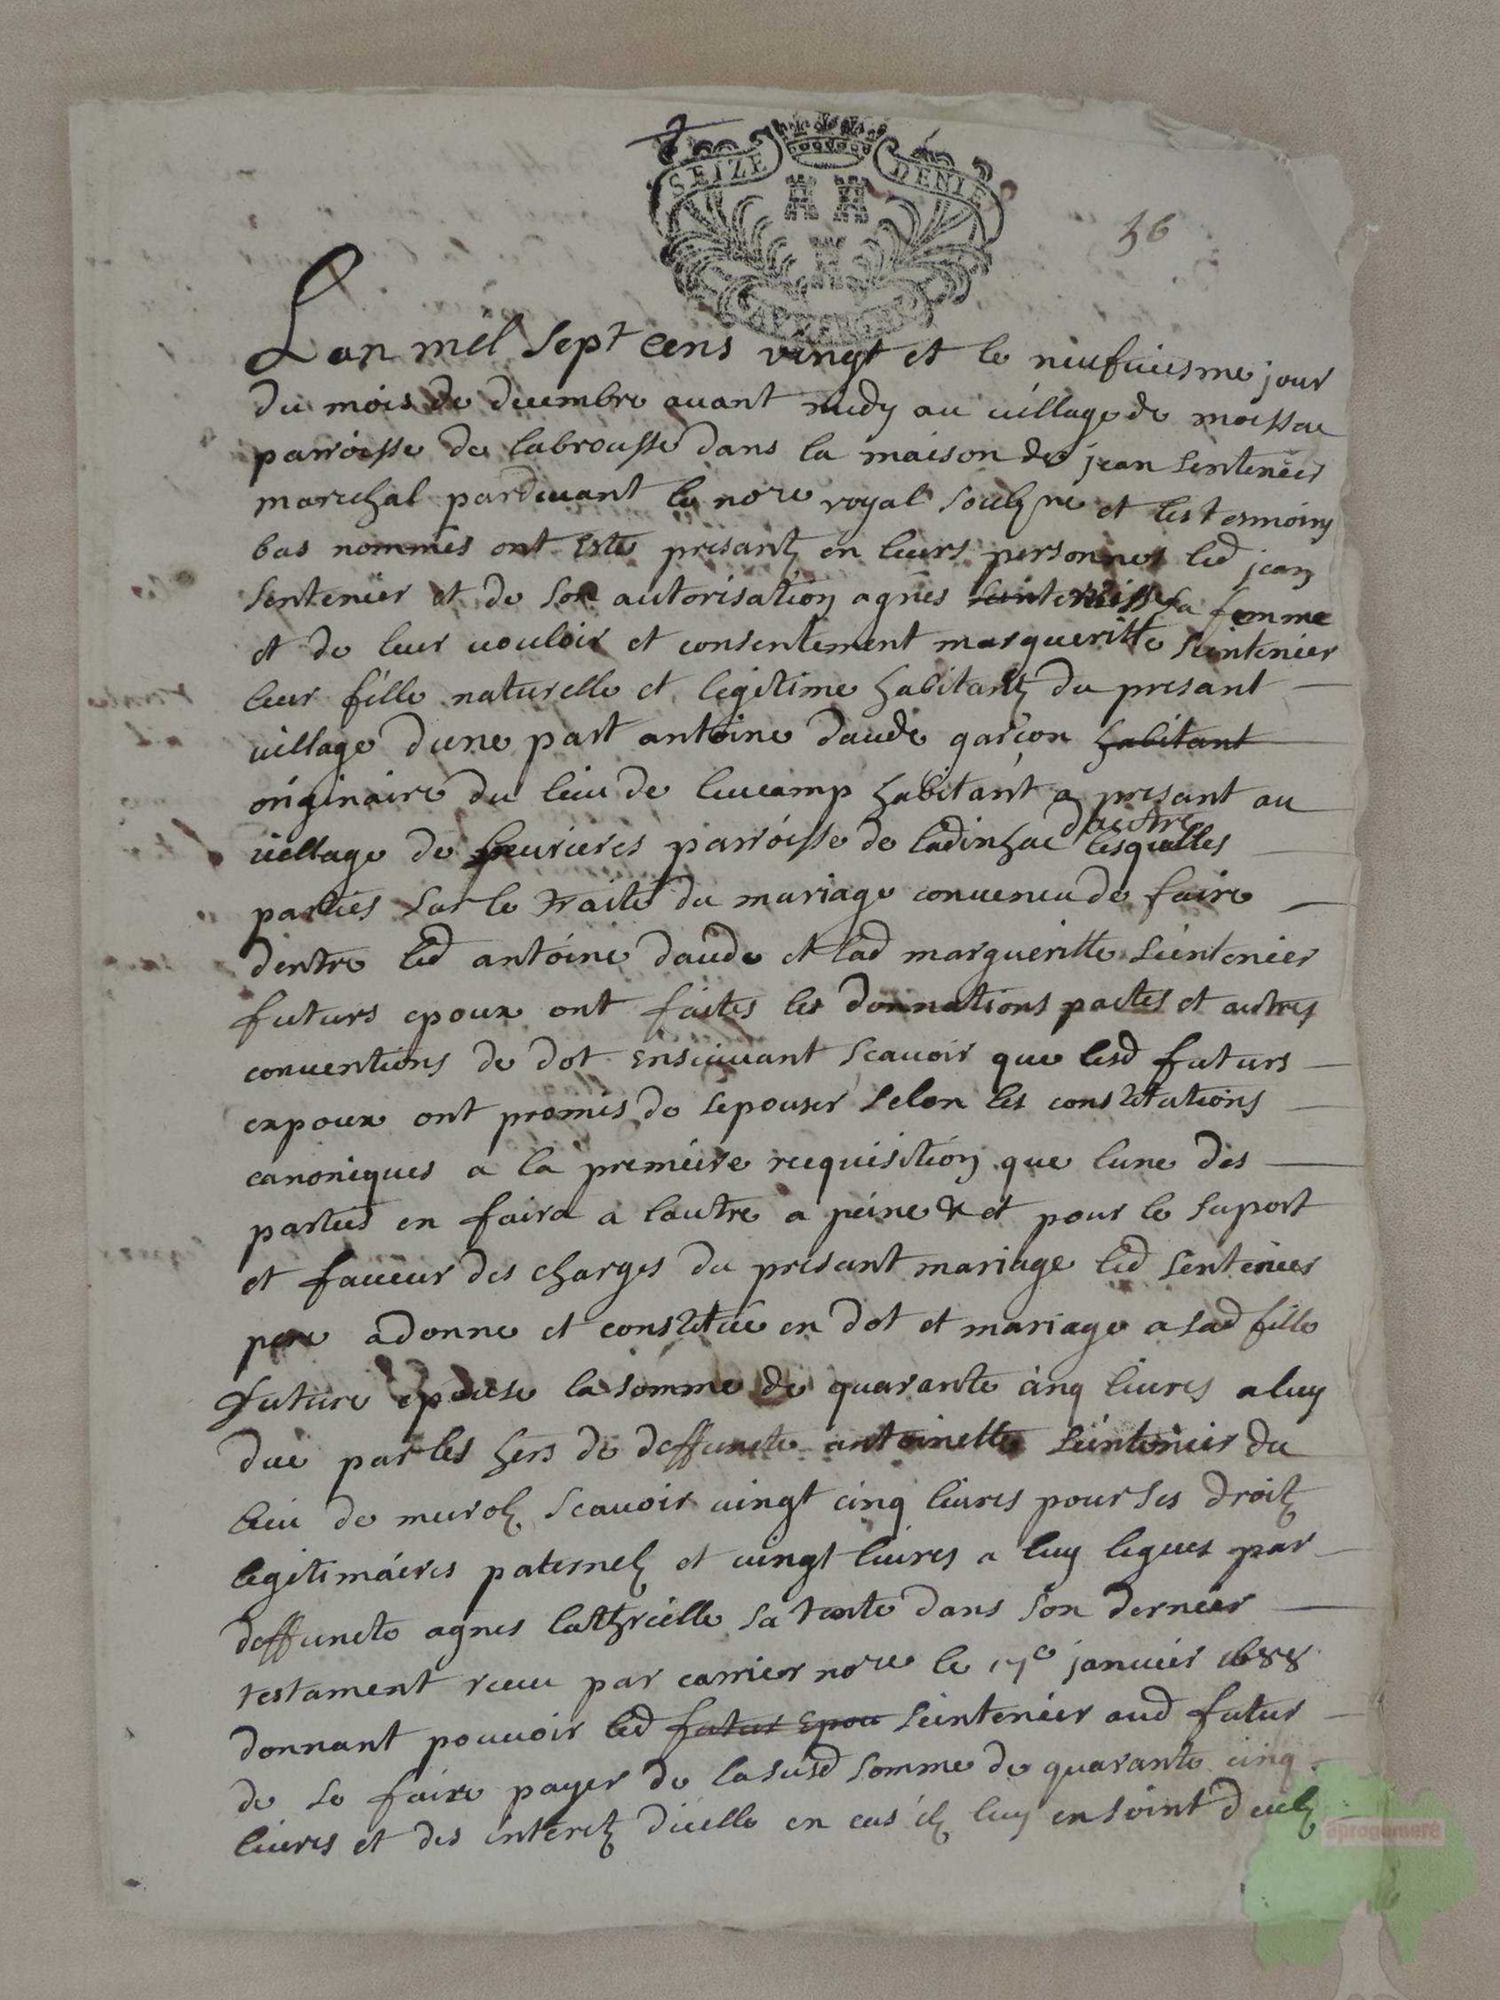 SEIZE DENIE
36
Lan mil sept cens vingt et le neufviesme jour
du mois de decembre avant midy au village de moissac
parroisse de labrousse dans la maison de jean sentenier
marechal pardevant le nore royal soubzne et les tesmoins
bas nommes ont este presantz en leurs personnes led jean
sentenier et de son autorisation agnes sa femme
et de leur vouloir et consentement margueritte seintenier
leur fille naturelle et legitime habitantz du presant
village dune part antoine daude garcon habitant
originaire du lieu de leucamp habitant a presant au
dautre
village de parroisse de ladinhac lesquelles
parties sur le traite du mariage convenu de faire
dentre led antoine daude et lad margueritte seintenier
futurs epoux ont faites les donnations pactes et autres
conventions de dot ensuivant scavoir que lesd futurs
expoux ont promis de sepouser selon les constitutions
canoniques a la premiere requisition que lune des
parties en faira a lautre a peine & et pour le suport
et faveur des charges du presant mariage led sentenier
pere a donne et constitue en dot et mariage a sad fille
future epouse la somme de quarante cinq livres a luy
due par les hers de deffuncte antoinette seintenier du
lieu de murolz scavoir vingt cinq livres pour ses droitz
legitimaires paternelz et vingt livres a luy legues par
deffuncte agnes sa tante dans son dernier
testament receu par carrier nore le 17e janvier 1688
donnant pouvoir led futur epou seintenier aud futur
de se faire payer de la susd somme de quarante cinq
livres et des interetz dicelle en cas il luy en soint deubz
aprogemere